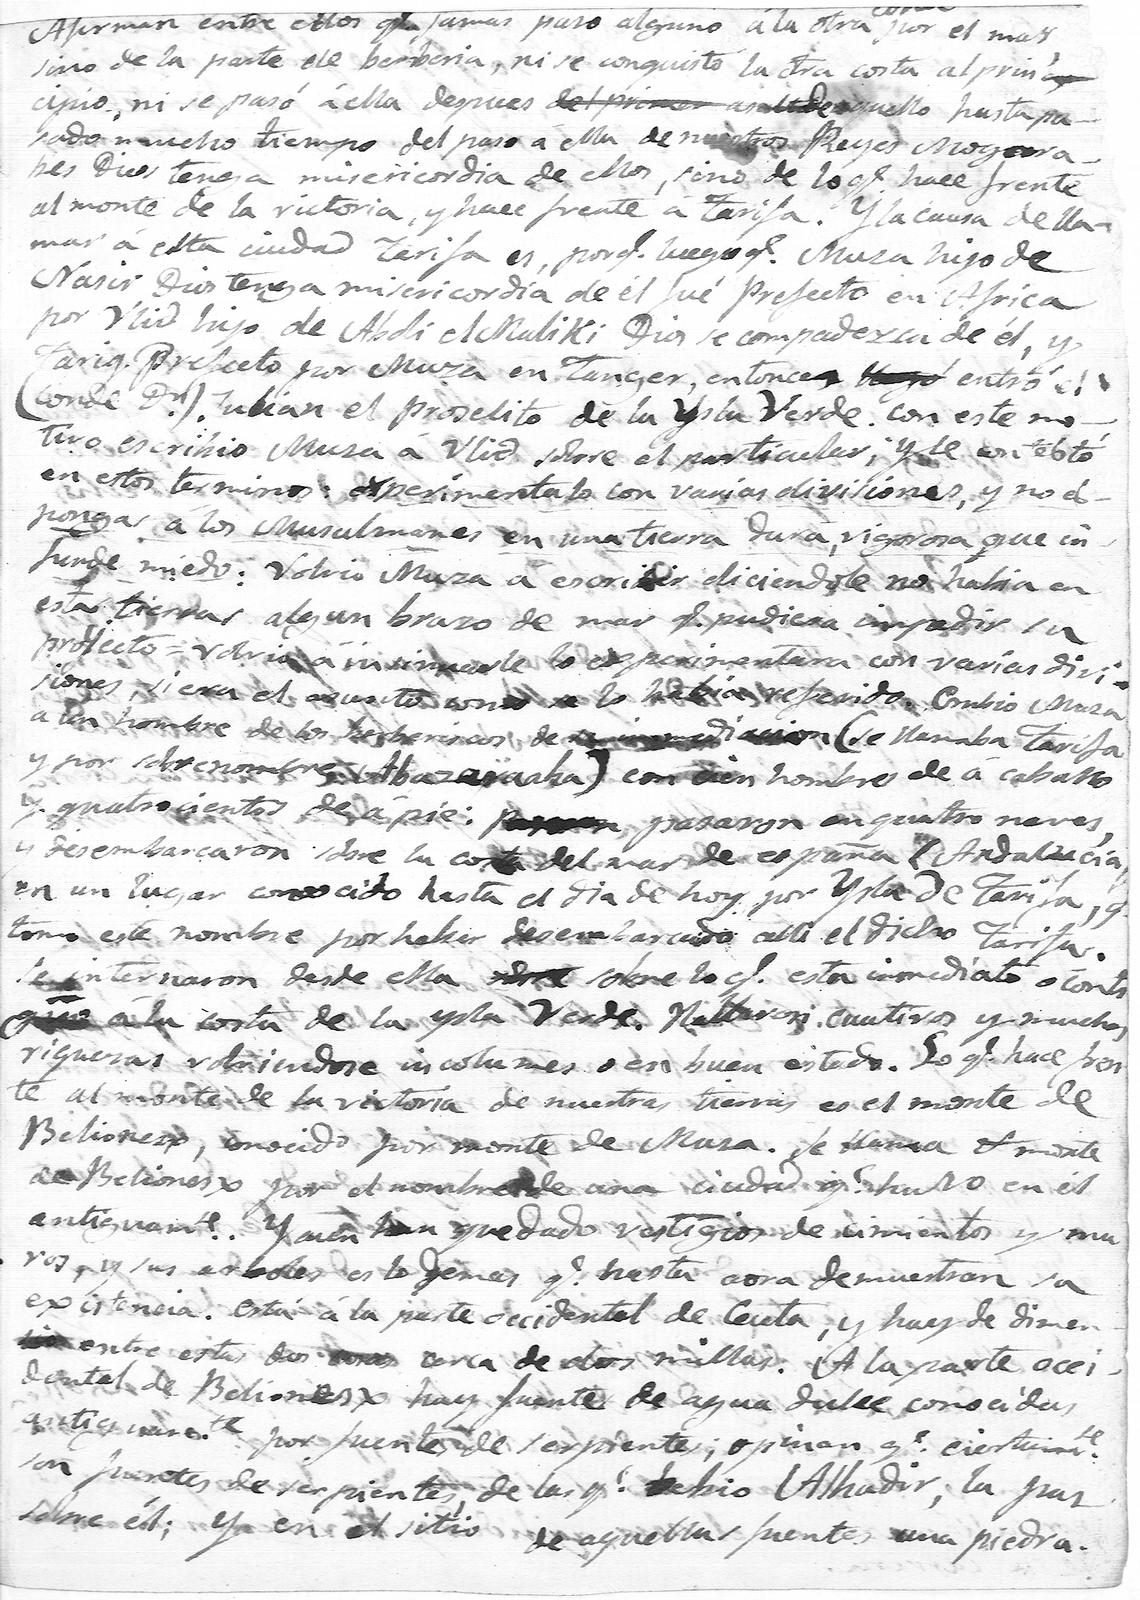 Afirman entre ellos q.e jamas paso alguno á la otra costa por el mar,
sino de la parte de berberia, ni se conquistó la otra costa al prin-
cipio, ni se pasó á ella depues del primer asalto de aquello hasta pa-
sado mucho tiempo del paso á ella de nuestros Reyes Mogora-
bes Dios tenga misericordia de ellos, sino de lo q.e hace frente
al monte de la victoria, y hace frente á Tarifa. Y la causa de lla-
mar á esta ciudad Tarifa es, porq.e luego q.e Muza hijo de
Nasir Dios tenga misericordia de él fué Prefecto en Africa
por Vlid hijo de Abdi el Maliki Dios se compadezca de él, y
Tariq. Prefecto por Muza en Tanger, entonces llegó entró el
(conde D.n) Julian el proselito de la Ysla Verde. con este mo-
tivo escribio Muza á Vlid sobre el particular; y le contestó
en estos terminos: experimentalo con varias divisiones, y no es-
pongas á los Musulmanes en una tierra dura, rigorosa que in-
funde miedo: Volvió Muza á escribir diciendole no habia en
estas tierras algun brazo de mar q.e pudiera impedir su
protecto = volvió á insinuarle lo experimentara con varias divi-
siones, si era el asunto como se lo habia referido. Embió Muza
á un hombre de los berberiscos de su inmediacion (se llamaba Tarifa
y por sobrenombre, Abuzaraaka) con cien hombres de á caballo
y quatrocientos de á pie: pasaron en quatro naves,
y desembarcaron sobre la costa del mar de españa (Andalucia,
en un lugar conocido hasta el dia de hoy por Ysla de Tarifa, q.e
tomo este nombre por haber desembarcado alli el dicho Tarifa.
Se internaron desde ella sobre lo q.e esta inmediato o conti
guo á la costa de la ysla Verde. Hallaron cautivos y muchas
riquezas volviendose incolumes o en buen estado. Lo q.e hace fren
te al monte de la victoria de nuestras tierras es el monte de
Belionex, conocido por monte de Muza. Se llama el monte
de Belionex por el nombre de una ciudad q.e hubo en él
antiguam.te. Y aun han quedado vestigios de cimientos y mu
ros, y sus arboles es lo demas q.e hasta aora demuestran su
existencia. Está á la parte occidental de Ceuta, y hay de dimen-
sion entre estas dos cosas cerca de dos millas. A la parte occi-
dental de Belionex hay fuente de agua dulce conocidas
antiguame.te por fuente de serpientes; opinan q.e ciertam.te
son fuentes de serpientes, de las q.e bebio (Alhadir, la paz
sobre él; Y en el sitio de aquellas fuentes una piedra.